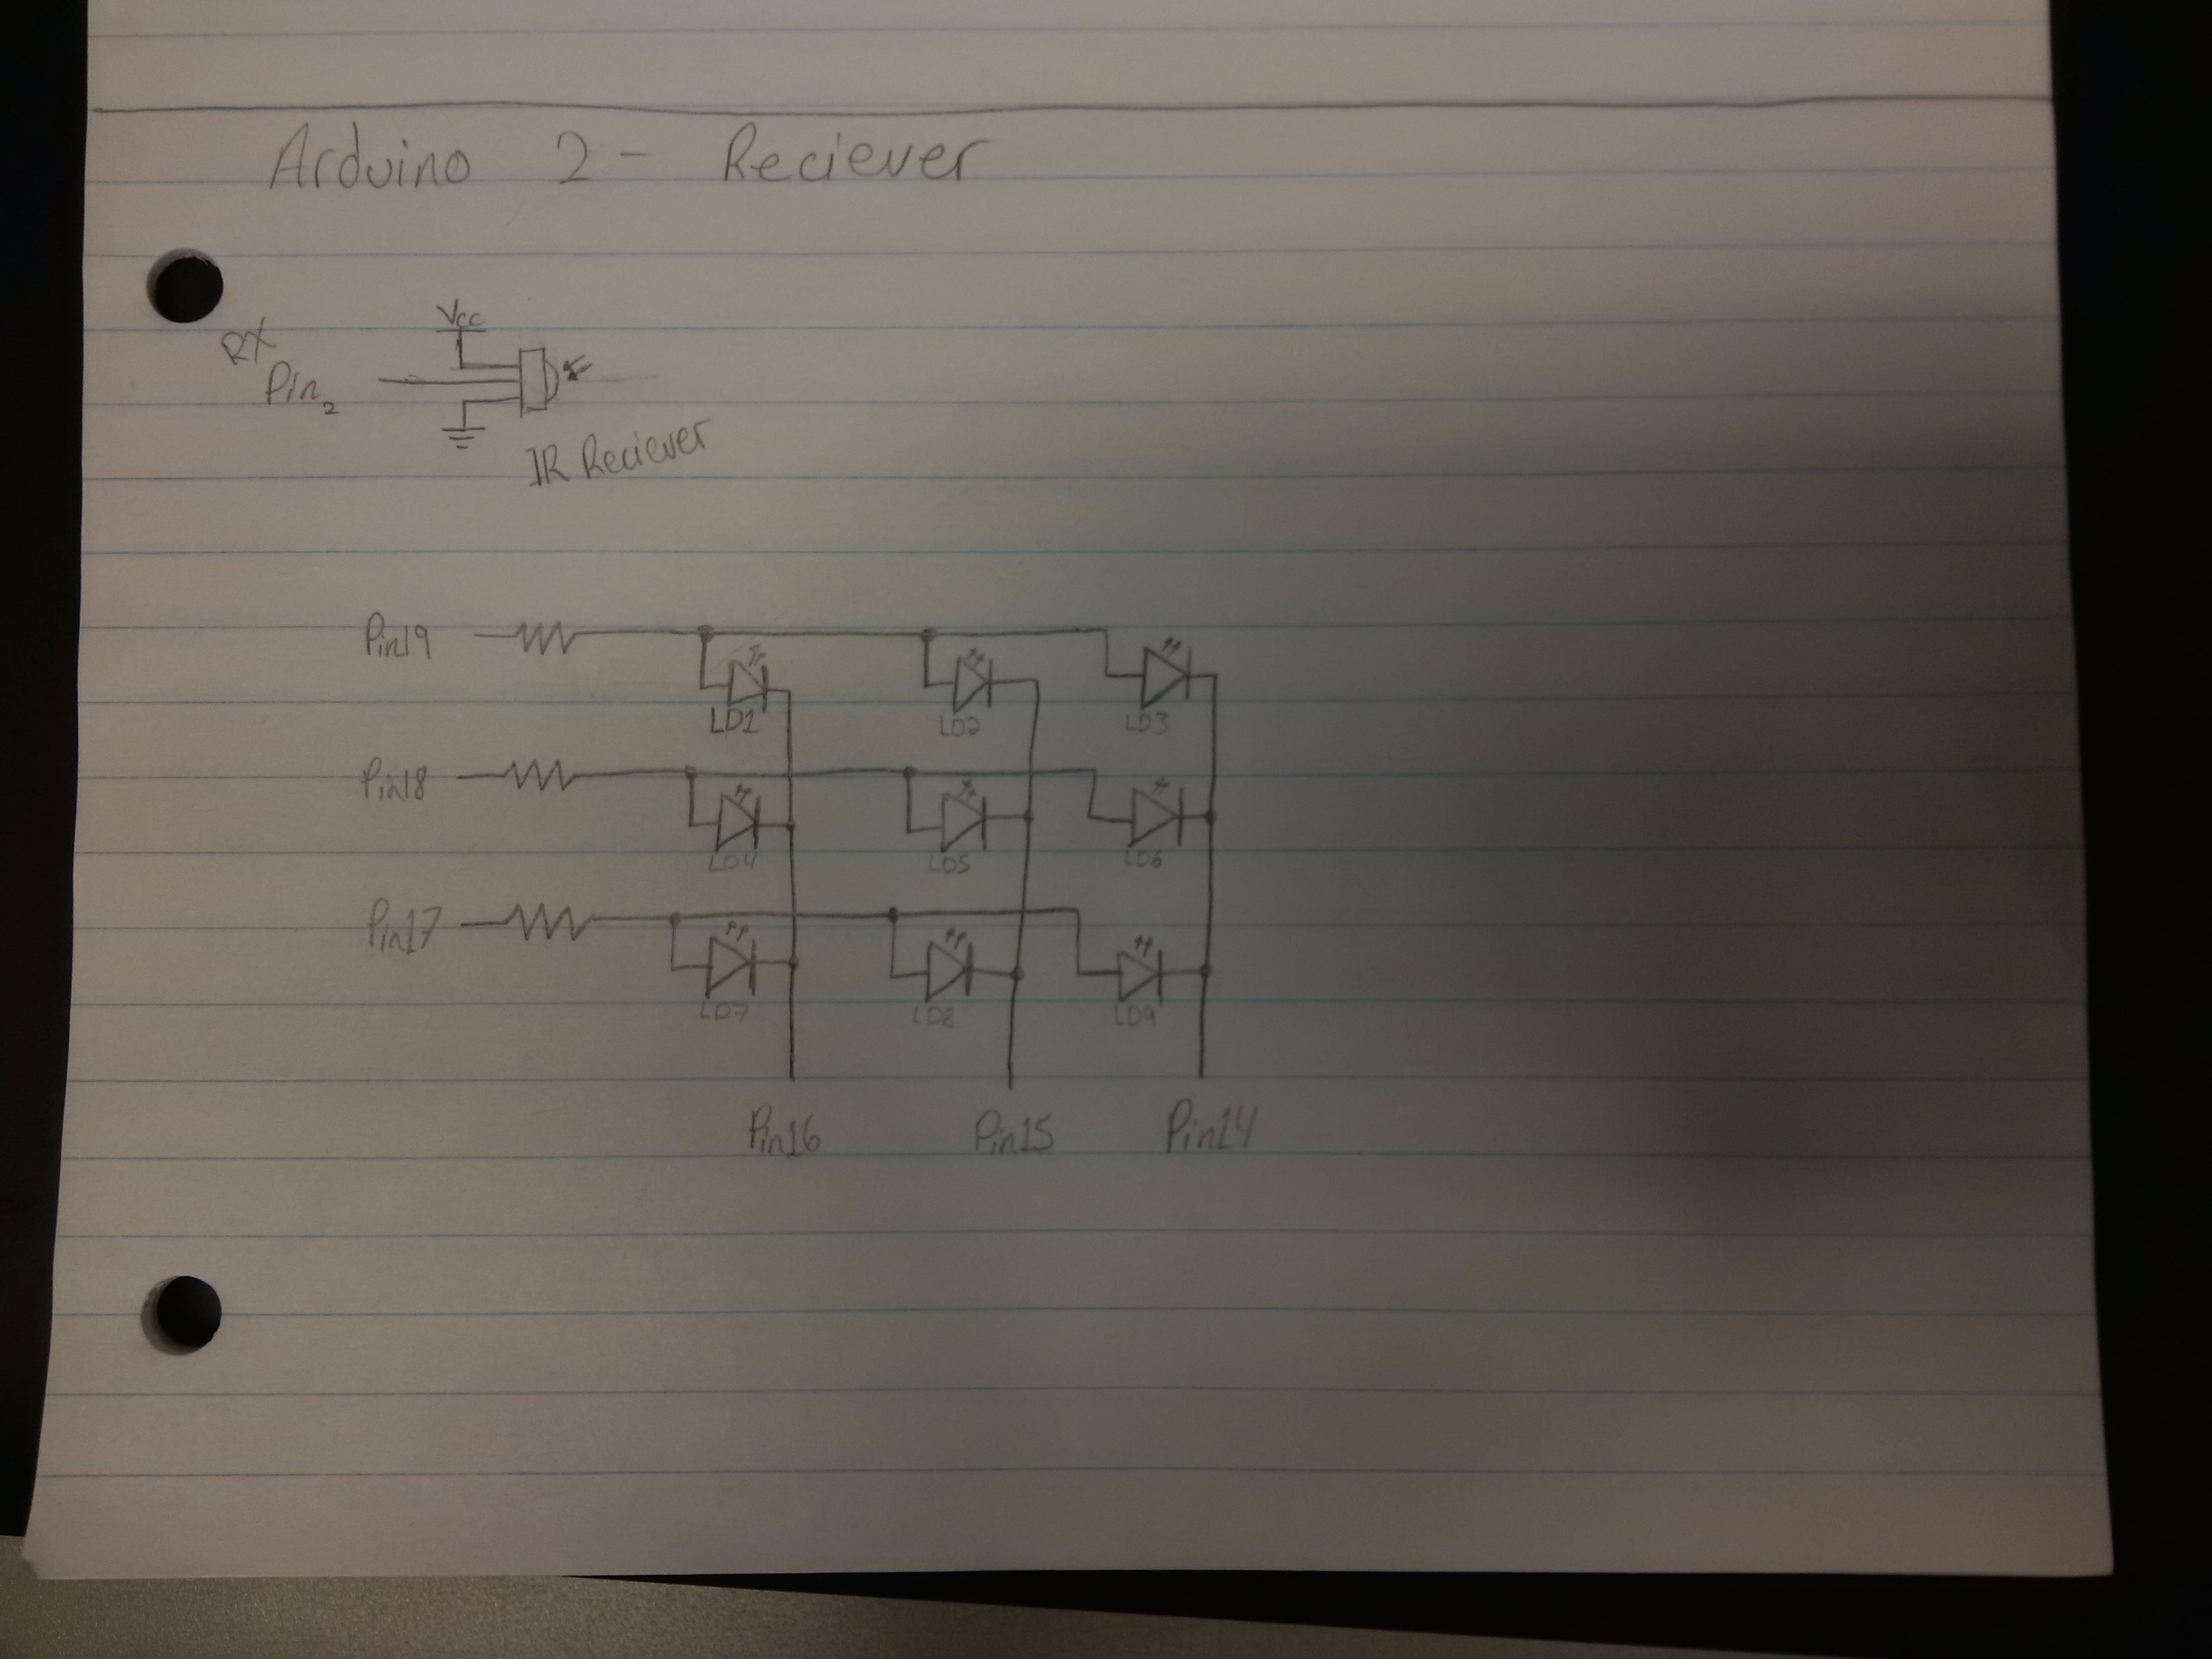 Arduino 2 - Reciever
Vcc
RX
Pin2
IR Reciever
Pin19
LD1 LD2 LD3
Pin18
LD4 LD5 LD6
Pin17
LD7 LD8 LD9
Pin16 Pin15 Pin14